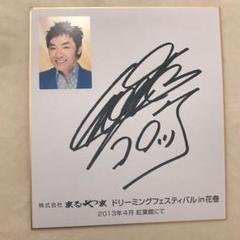 コロッケ
株式会社 まるみつま ドリーミングフェスティバル in 花巻
2013年4月 紅葉館にて